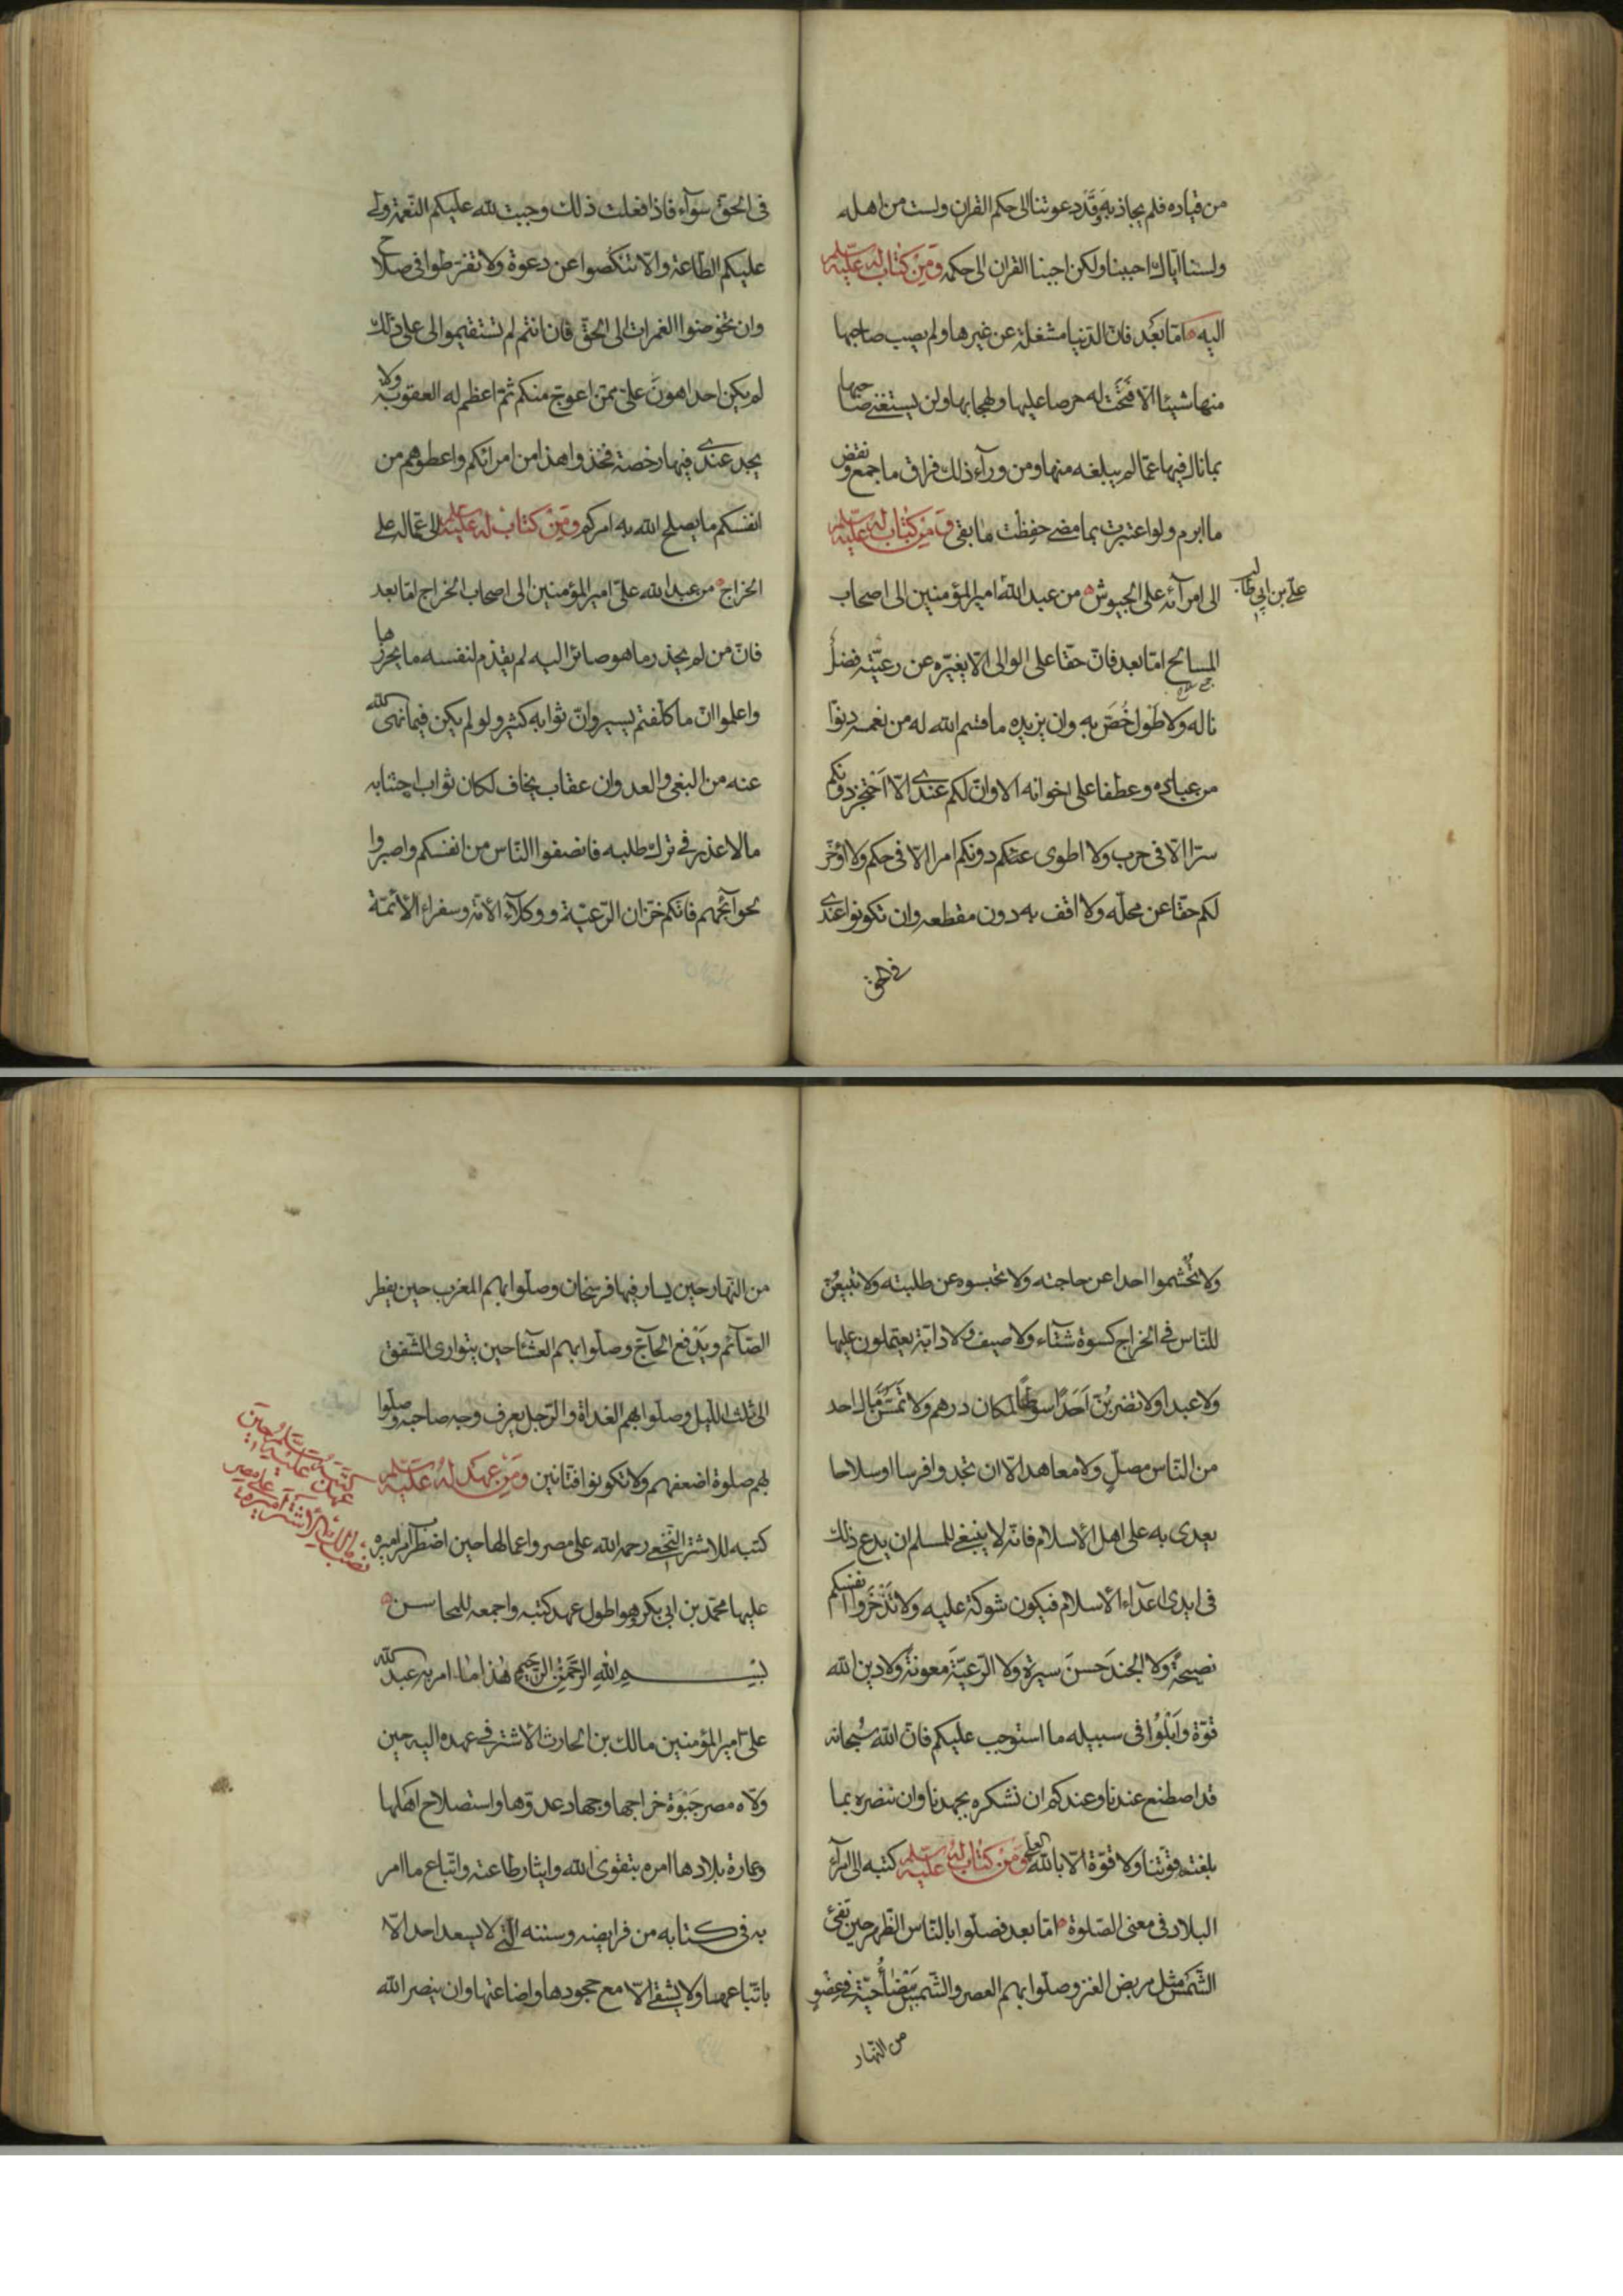 من قياده فلم يجاذبه وقد دعوتنا الى حكم القران ولست من اهله
ولسنا اياك اجبنا ولكن اجبنا القران الى حكمه ومن كتاب له عليه السلم
اليه اما بعد فان الدنيا مشغلة عن غيرها ولم يصب صاحبها
منها شيئا الا فتحت له حرصا عليها ولهجا بها ولن يستغنى صاحبها
بما نال فيها عما لم يبلغه منها ومن ورآء ذلك فراق ما جمع ونقض
ما ابرم ولو اعتبرت بما مضى حفظت ما بقى ومن كتاب له عليه السلم
الى امرآئه على الجيوش من عبد الله امير المؤمنين الى اصحاب
على بن ابى طالب
المسالح اما بعد فان حقا على الوالى الا يغيره عن رعيته فضل
ناله ولا طول خص به وان يزيده ما قسم الله له من نعمه دنوا
من عباده وعطفا على اخوانه الا وان لكم عندى الا احتجز دونكم
سرا الا فى حرب ولا اطوى عنكم دونكم امرا الا فى حكم ولا اؤخر
لكم حقا عن محله ولا اقف به دون مقطعه وان تكونوا عندى
فى الحق
فى الحق سوآء فاذا فعلت ذلك وجبت لله عليكم النعمة ولى
عليكم الطاعة والا تنكصوا عن دعوة ولا تفرطوا فى صلاح
وان تخوضوا الغمرات الى الحق فان انتم لم تستقيموا لى على ذلك
لم يكن احد اهون على ممن اعوج منكم ثم اعظم له العقوبة ولا
يجد عندى فيها رخصة فخذوا هذا من امرائكم واعطوهم من
انفسكم ما يصلح الله به امركم ومن كتاب له عليه السلم الى عماله على
الخراج من عبد الله على امير المؤمنين الى اصحاب الخراج اما بعد
فان من لم يحذر ما هو صائر اليه لم يقدم لنفسه ما يحرزها
واعلموا ان ما كلفتم يسير وان ثوابه كثير ولو لم يكن فيما نهى الله
عنه من البغى والعدوان عقاب يخاف لكان ثواب اجتنابه
ما لا عذر فى ترك طلبه فانصفوا الناس من انفسكم واصبروا
لحوآئجهم فانكم خزان الرعية ووكلآء الامة وسفراء الأئمة
ولا تحشموا احدا عن حاجته ولا تحبسوه عن طلبته ولا تبيعن
للناس فى الخراج كسوة شتآء ولا صيف ولا دابة يعتملون عليها
ولا عبدا ولا تضربن احدا سوطا لمكان درهم ولا تمسن مال احد
من الناس مصل ولا معاهد الا ان تجدوا فرسا او سلاحا
يعدى به على اهل الاسلام فانه لا ينبغى للمسلم ان يدع ذلك
فى ايدى اعدآء الاسلام فيكون شوكة عليه ولا تدخروا انفسكم
نصيحة ولا الجند حسن سيرة ولا الرعية معونة ولا دين الله
قوة وابلوا فى سبيله ما استوجب عليكم فان الله سبحانه
قد اصطنع عندنا وعندكم ان نشكره بجهدنا وان ننصره بما
بلغته قوتنا ولا قوة الا بالله العلى ومن كتاب له عليه السلم كتبه الى امرآء
البلاد فى معنى الصلوة اما بعد فصلوا بالناس الظهر حين تفئ
الشمس مثل مربض العنز وصلوا بهم العصر والشمس بيضآء حية فى عضو
من النهار
من النهار حين يسار فيها فرسخان وصلوا بهم المغرب حين يفطر
الصآئم ويدفع الحآج وصلوا بهم العشآء حين يتوارى الشفق
الى ثلث الليل وصلوا بهم الغداة والرجل يعرف وجه صاحبه وصلوا
بهم صلوة اضعفهم ولا تكونوا فتانين ومن عهد له عليه السلم
كتبه للاشتر النخعى رحمه الله على مصر واعمالها حين اضطرب امر اميره
عليها محمد بن ابى بكر وهو اطول عهد كتبه واجمعه للمحاسن
بسم الله الرحمن الرحيم هذا ما امر به عبد الله
على امير المؤمنين مالك بن الحارث الاشتر فى عهده اليه حين
ولاه مصر جبوة خراجها وجهاد عدوها واستصلاح اهلها
وعمارة بلادها امره بتقوى الله وايثار طاعته واتباع ما امر
به فى كتابه من فرايضه وسننه التى لا يسعد احد الا
باتباعها ولا يشقى الا مع جحودها واضاعتها وان ينصر الله